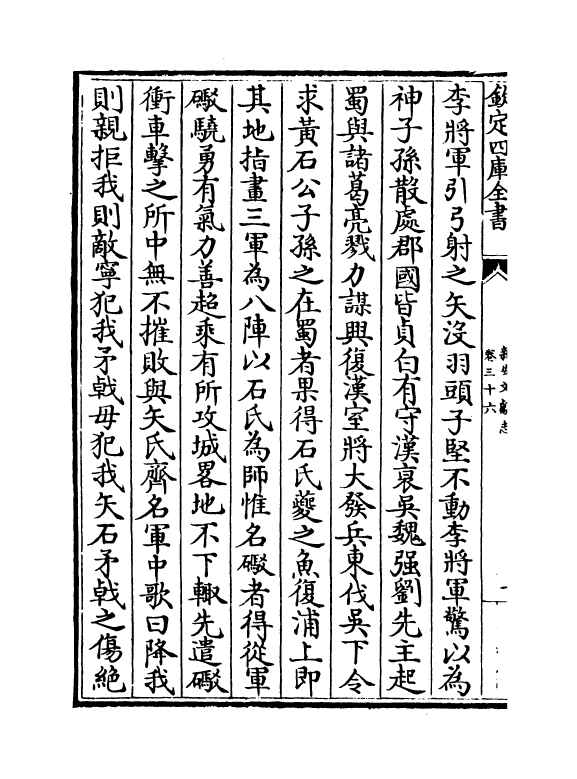 欽定四庫全書
卷三十六
李將軍引弓射之矢沒羽頭子堅不動李將軍驚以為
神子孫散處郡國皆貞白有守漢衰吳魏强劉先主起
蜀與諸葛亮戮力謀興復漢室將大發兵東伐吳下令
求黃石公子孫之在蜀者果得石氏夔之魚復浦上即
其地指畫三軍為八陣以石氏為師惟名礮者得從軍
礮驍勇有氣力善超乘有所攻城畧地不下輙先遣礮
衝車擊之所中無不摧敗與矢氏齊名軍中歌曰降我
則親拒我則敵寧犯我矛戟毋犯我矢石矛戟之傷絶